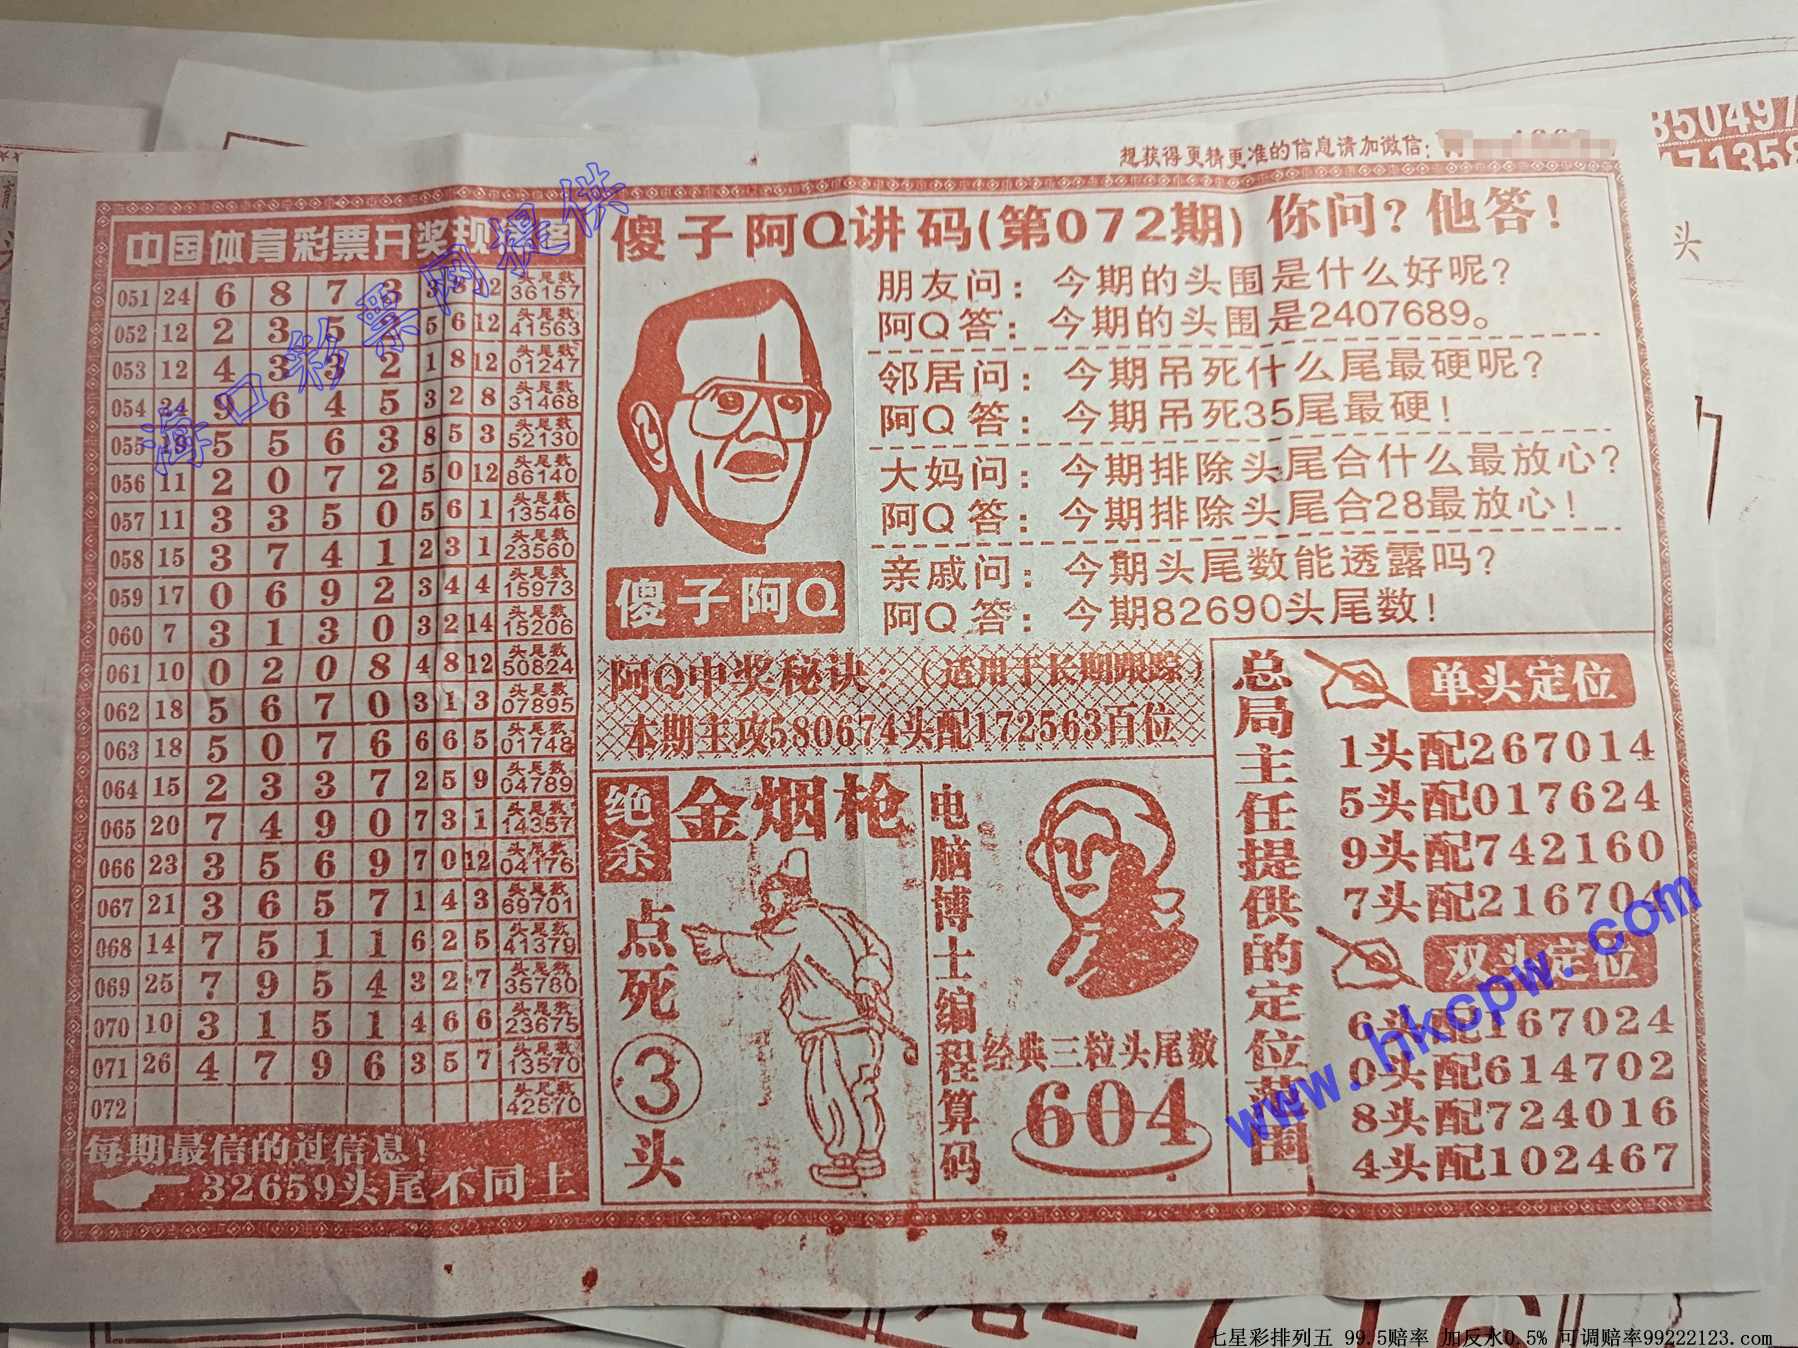 想获得更精更准的信息请加微信:
中国体育彩票开奖规律图
傻子阿Q讲码(第072期) 你问? 他答!
051 24 6 8 7 3 3 2 头尾数 36157
052 12 2 3 5 2 5 6 12 头尾数 41563
053 12 4 3 3 2 1 8 12 头尾数 01247
054 24 9 6 4 5 3 2 8 头尾数 31468
055 19 5 5 6 3 8 5 3 头尾数 52130
056 11 2 0 7 2 5 0 12 头尾数 86140
057 11 3 3 5 0 5 6 1 头尾数 13546
058 15 3 7 4 1 2 3 1 头尾数 23560
059 17 0 6 9 2 3 4 4 头尾数 15973
060 7 3 1 3 0 3 2 14 头尾数 15206
061 10 0 2 0 8 4 8 12 头尾数 50824
062 18 5 6 7 0 3 1 3 头尾数 07895
063 18 5 0 7 6 6 6 5 头尾数 01748
064 15 2 3 3 7 2 5 9 头尾数 04789
065 20 7 4 9 0 7 3 1 头尾数 14357
066 23 3 5 6 9 7 0 12 头尾数 04176
067 21 3 6 5 7 1 4 3 头尾数 69701
068 14 7 5 1 1 6 2 5 头尾数 41379
069 25 7 9 5 4 3 2 7 头尾数 35780
070 10 3 1 5 1 4 6 6 头尾数 23675
071 26 4 7 9 6 3 5 7 头尾数 13570
072 头尾数 42570
每期最信的过信息!
32659头尾不同上
朋友问: 今期的头围是什么好呢?
阿Q答: 今期的头围是2407689。
邻居问: 今期吊死什么尾最硬呢?
阿Q答: 今期吊死35尾最硬!
大妈问: 今期排除头尾合什么最放心?
阿Q答: 今期排除头尾合28最放心!
亲戚问: 今期头尾数能透露吗?
阿Q答: 今期82690头尾数!
傻子阿Q
阿Q中奖秘诀:(适用于长期跟踪)
本期主攻580674头配172563百位
绝杀
金烟枪
点死
③
头
电脑博士编程算码
经典三粒头尾数
604
总局主任提供的定位范围
单头定位
1头配267014
5头配017624
9头配742160
7头配216704
双头定位
6头配167024
0头配614702
8头配724016
4头配102467
海口彩票网提供
www.hkcpw.com
350497
171358
头
七星彩排列五 99.5赔率 加反水0.5% 可调赔率99222123.com